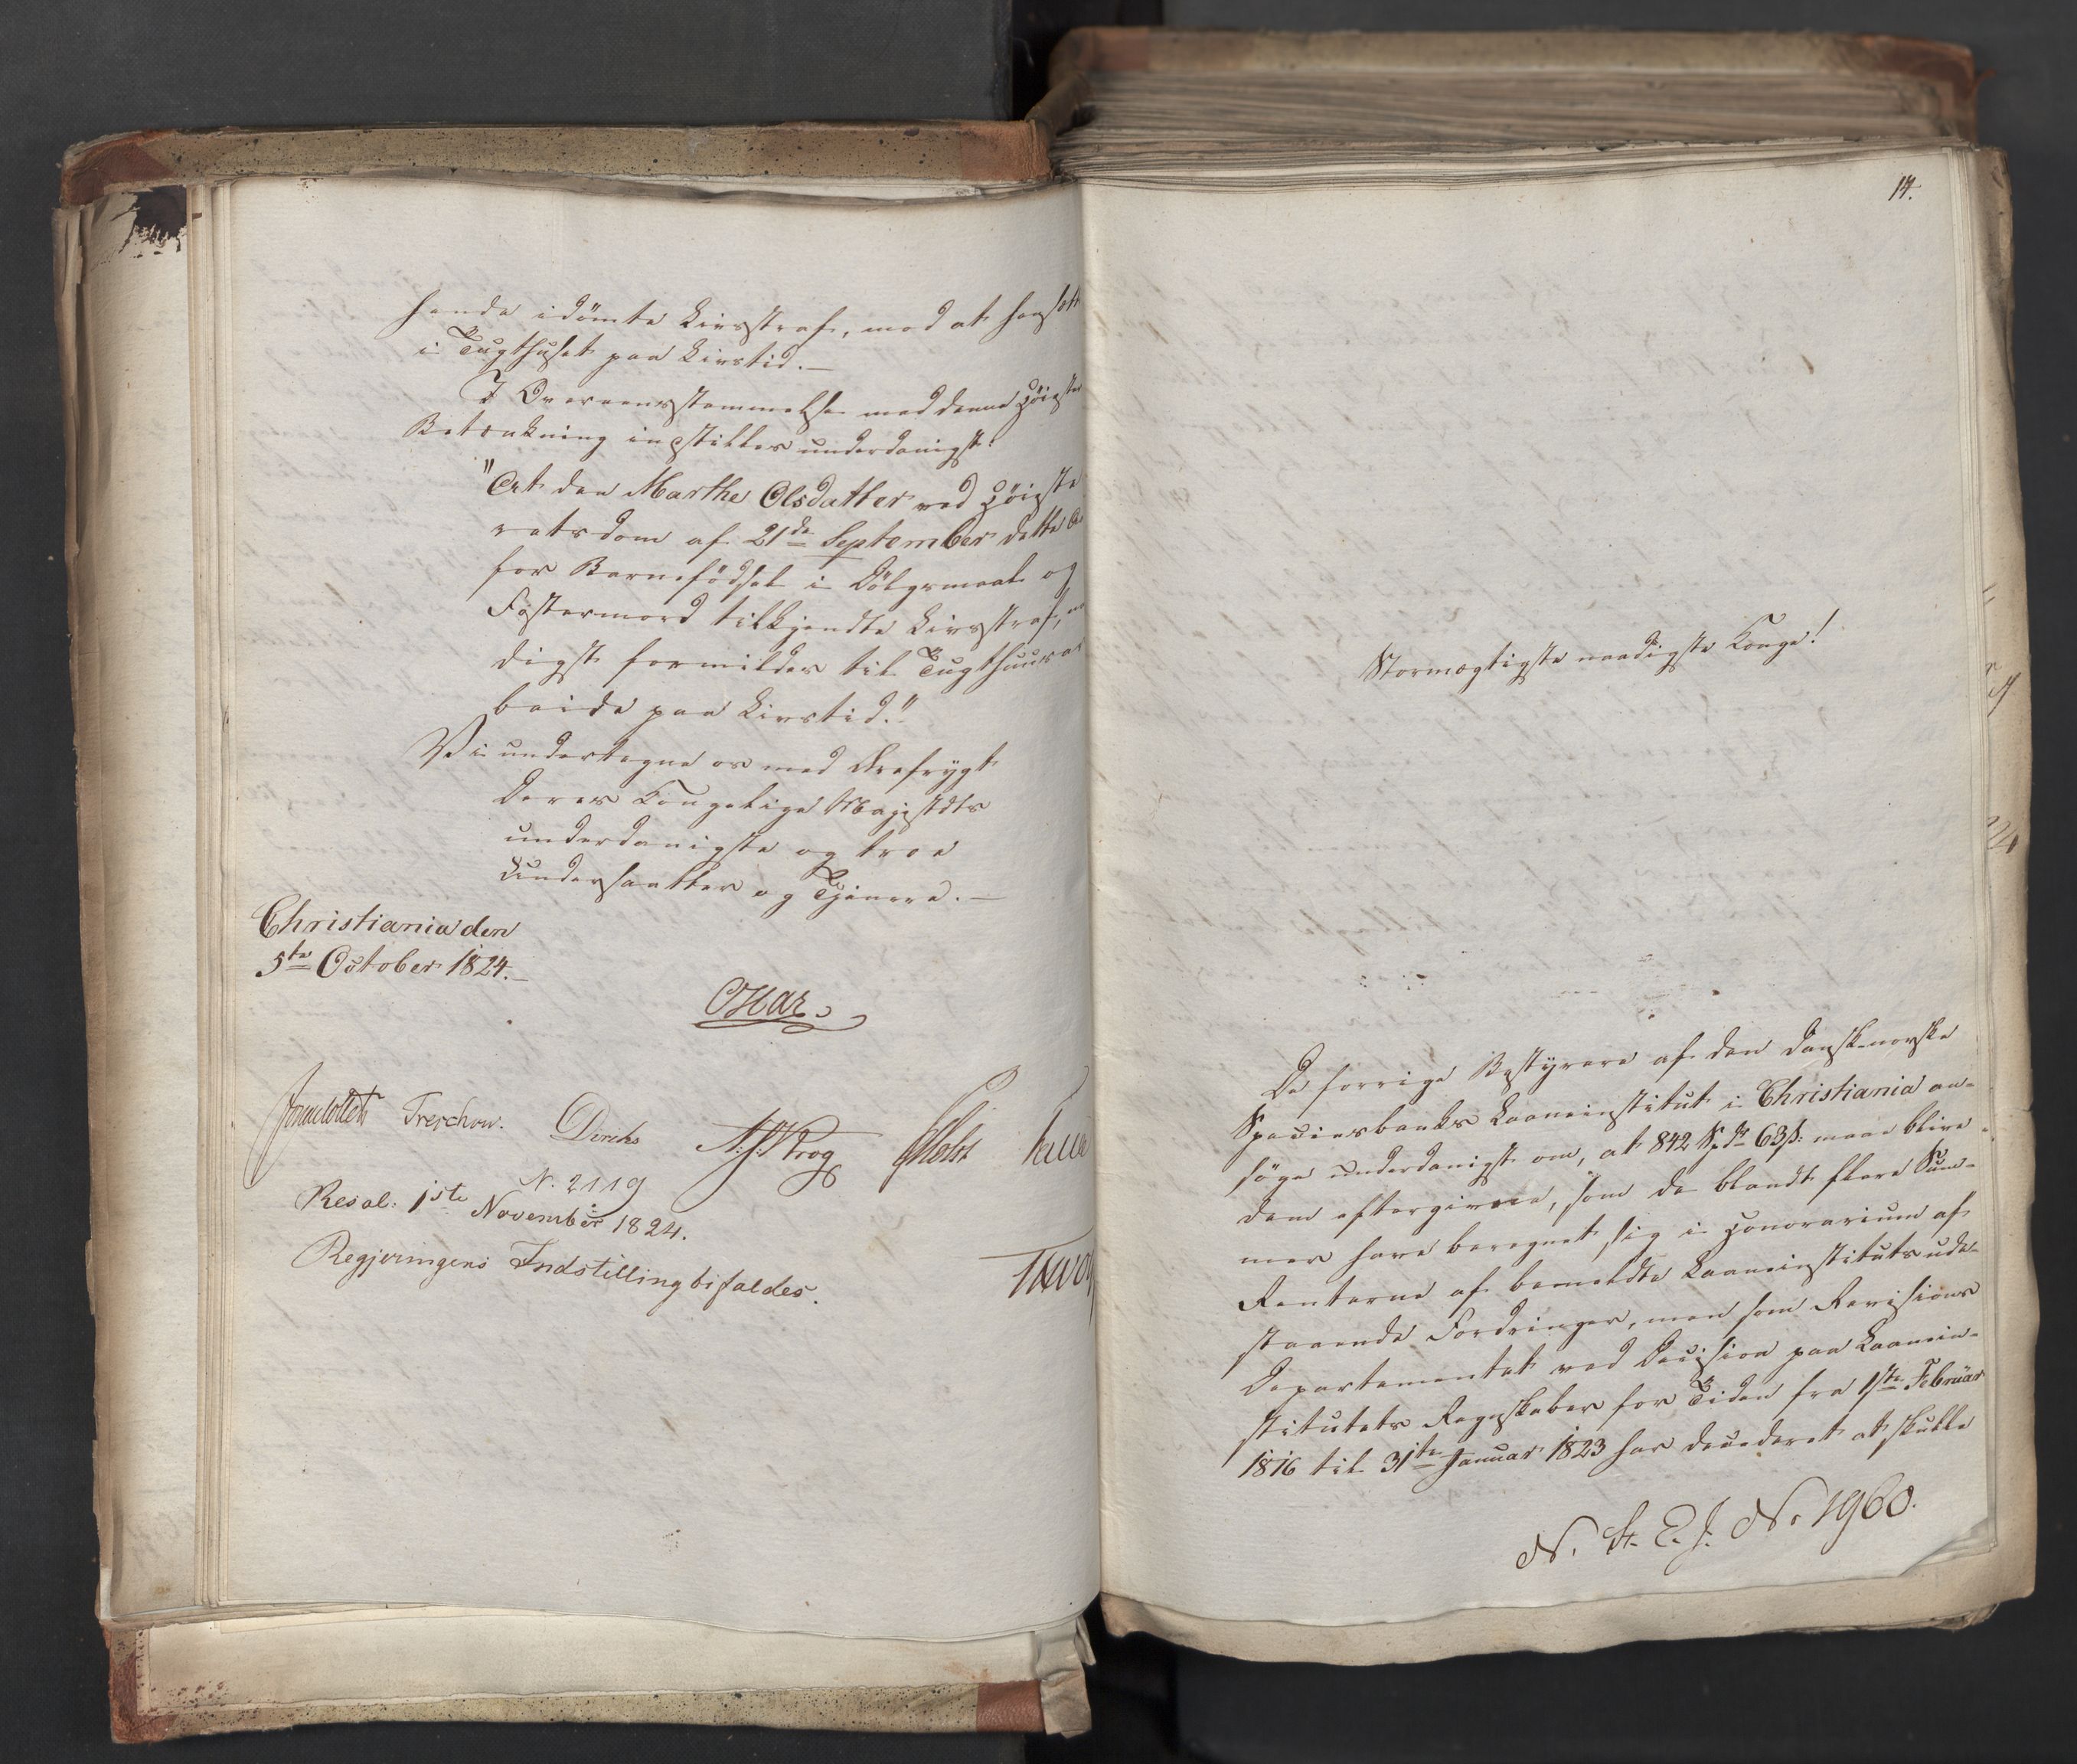 hende idömte Livsstraf, mod at hensætt
i Tugthuset paa Livstid.—
I Overeensstemmelse med denne Höieste
Betænkning indstilles underdanigst:
"At den Marthe Olsdatter ved Höieste
retsdom af 21de September dette A
for Barnefödsel i Dölgsmaal og
Fostermord tilkjendte Livsstraf, n
digst formildes til Tugthuusar
beide paa Livstid."
Vi undertegne os med Ærefrygt
Deres Kongelige Majestæts
underdanigste og troe
Undersaatter og Tjenere.—
Christiania den
5te October 1824.—
Oscar
Treschow. Diriks Krog Holst
N. 2119
Resol: 1ste November 1824.
Regjeringens Indstilling bifaldes.
14.
Stormægtigste naadigste Konge!
De forrige Bestyrere af den dansk-norske
Speciesbanks Laaneinstitut i Christiania an-
söge underdanigst om, at 842 Spdr 63 ß: maae blive
dem eftergivne, som de blandt flere Sum-
mer have beregnet sig i Honorarium af
Renterne af bemeldte Laaneinstituts ude-
staaende Fordringer, men som Revisions
Departementet ved Decision paa Laanein-
stitutets Regnskaber for Tiden fra 1ste Februar
1816 til 31te Januar 1823 har decideret at skulle
N. St. E. J. No 1960.